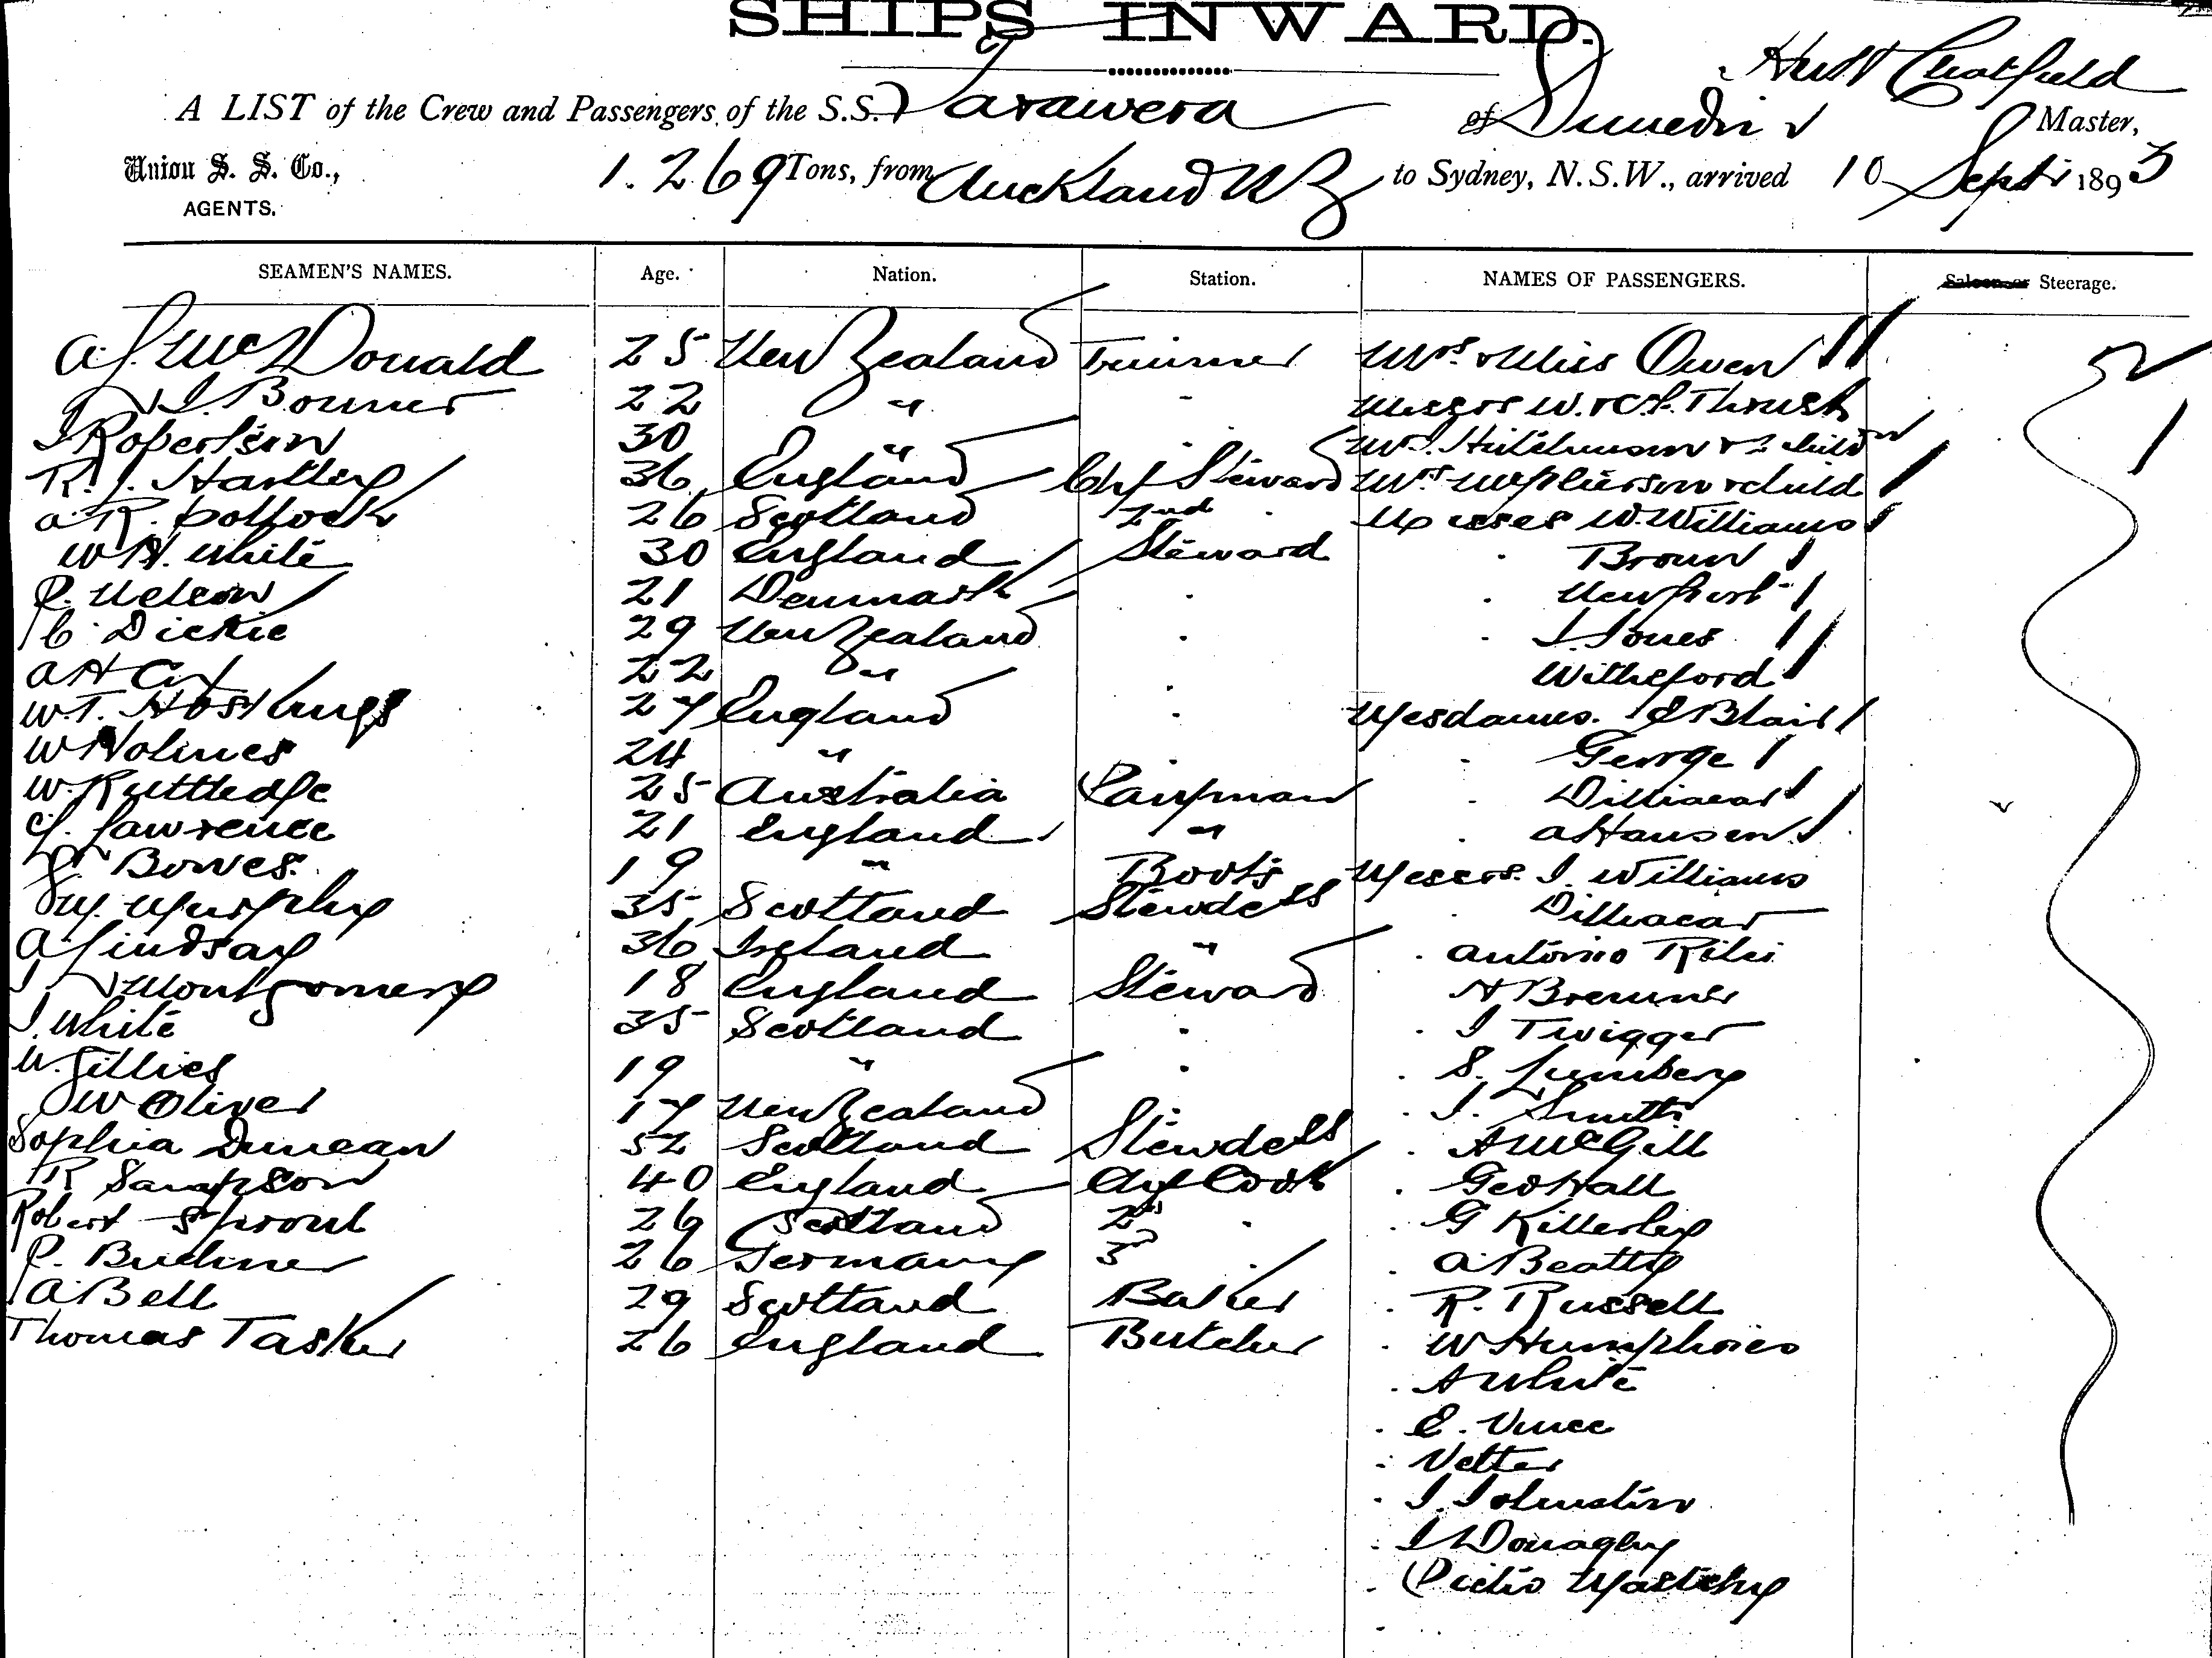 SHIPS INWARD.
A LIST of the Crew and Passengers of the S.S. Tarawera of Dunedin Chatfield Master,
Union S. S. Co., AGENTS. 1.269 Tons, from Auckland NZ to Sydney, N.S.W., arrived 10 Sept 1893
SEAMEN'S NAMES. Age. Nation. Station. NAMES OF PASSENGERS. Saloon or Steerage.
McDonald 25 New Zealand Trimmer Mrs & Miss Owen
22 " Messrs W. & Thrush
J Robertson 30 " Hutchinson & 2 child
R. J. Hartley 36 England Chf Steward Mrs McPherson & child
A R. Pollock 26 Scotland 2nd Messrs W. Williams
W H. White 30 England Steward Brown
P. Nelson 21 Denmark Newport
C. Dickie 29 New Zealand J. Jones
A H Cox 22 " Witheford
W. T. Hastings 27 England Mesdames. Blair
W Holmes 24 " George
W. Ruttledge 25 Australia Pantryman
Lawrence 21 England " A Hansen
Bowes. 19 " Boots Messrs. J. Williams
Murphy 35 Scotland Stewdess
A Lindsay 36 Ireland " Antonio
J Montgomery 18 England Steward A Bremner
J. White 35 Scotland J Twigger
W. Gillies 19 " S.
J W Oliver 17 New Zealand J. Smith
Sophia Duncan 52 Scotland Stewdess A McGill
R Sampson 40 England Chf Cook Geo Hall
Robert Sproul 26 Scotland 2nd G Killerley
P. 26 Germany 3 A Beatty
A Bell 29 Scotland Baker R. Russell
Thomas Tasker 26 England Butcher W Humphries
A White
E. Vince
Vetter
J. Johnston
J Donaghy